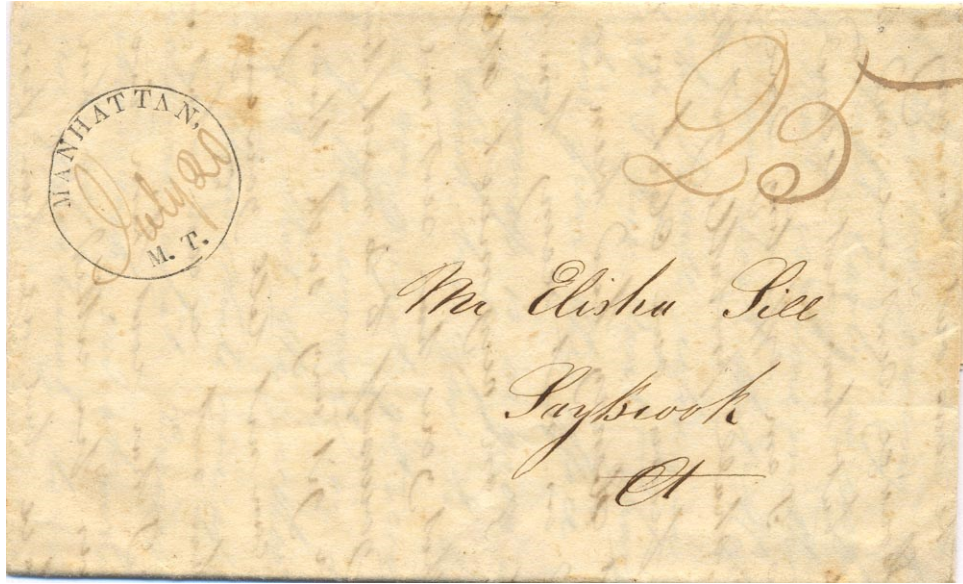 MANHATTAN,
July 20
M. T.
25
Mr Elisha Sill
SayBrook
Ct